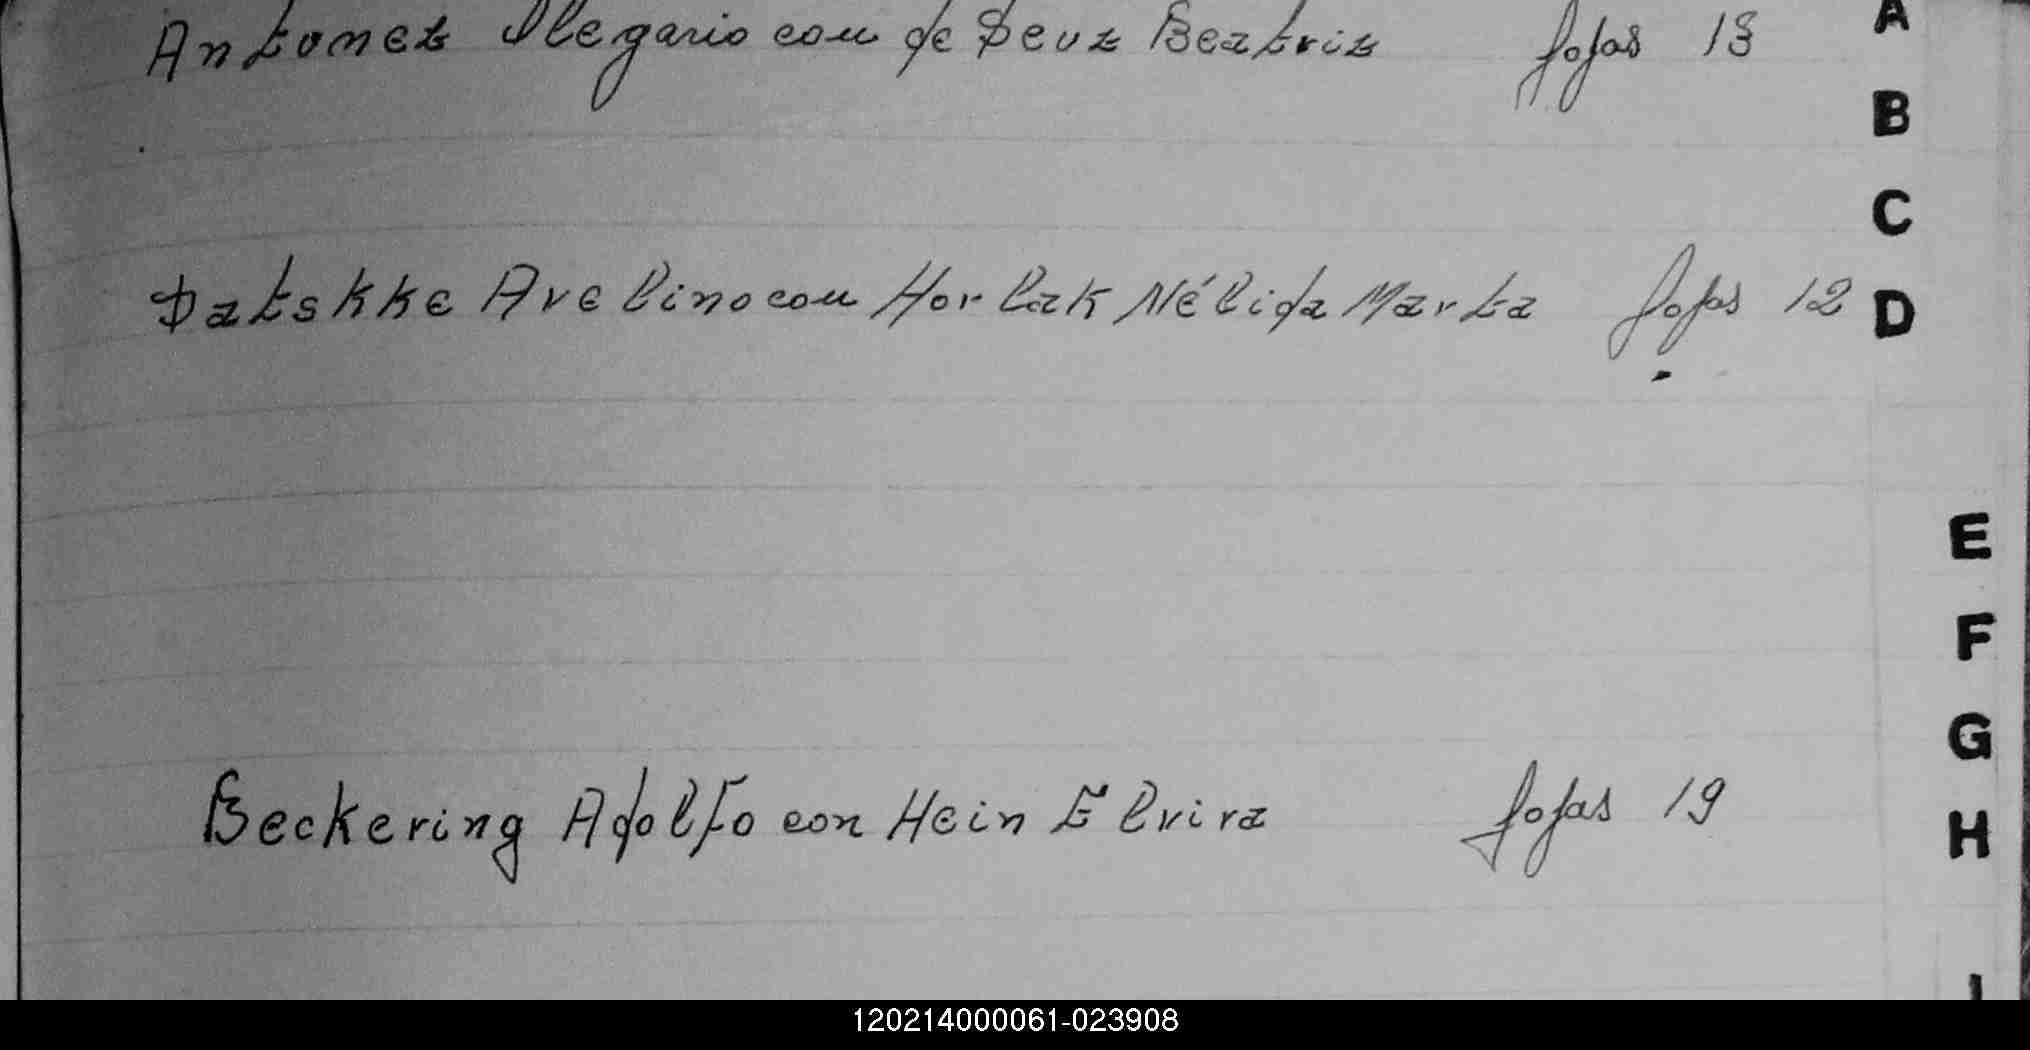 Antonez Olegario con de Deuz Beatriz fojas 13
A
B
C
Datskke Avelino con Horlak Nélida Marta fojas 12
D
E
F
G
Beckering Adolfo con Hein Elvira fojas 19
H
I
120214000061-023908